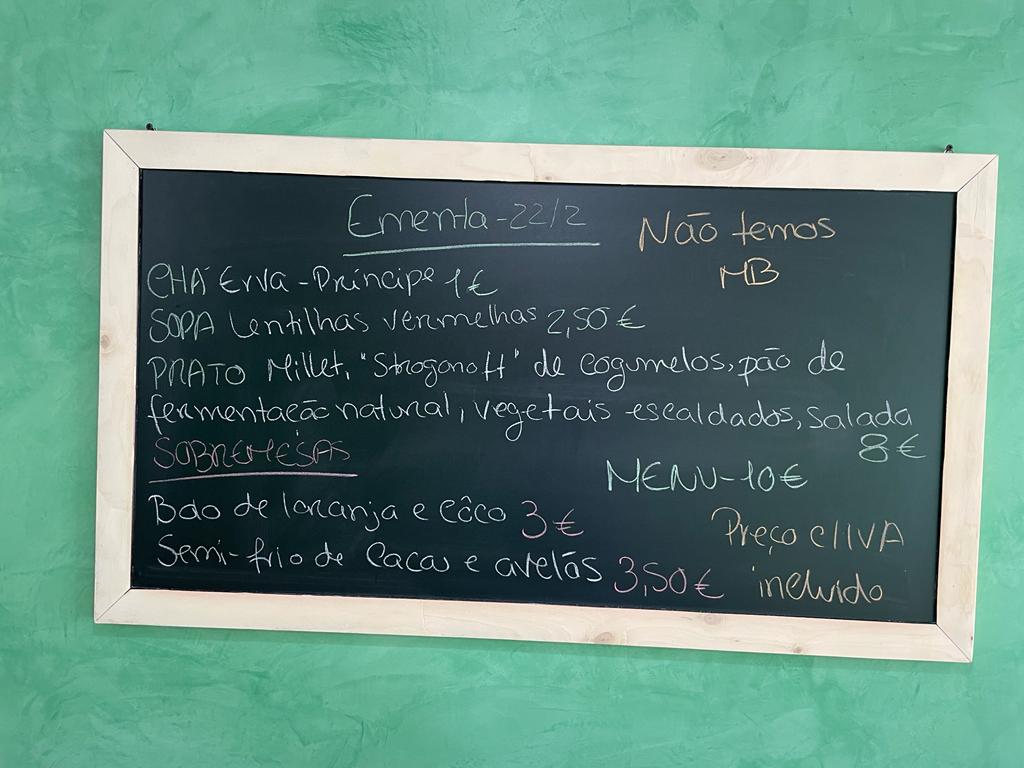 Ementa - 22/2
Não temos
MB
CHÁ Erva - Príncipe 1€
SOPA Lentilhas vermelhas 2,50€
PRATO Millet, "Strogonoff" de cogumelos, pão de
fermentação natural, vegetais escaldados, salada
8€
SOBREMESAS
MENU - 10€
Bolo de laranja e côco 3€
Preço c/IVA
Semi-frio de cacau e avelãs 3,50€
incluido